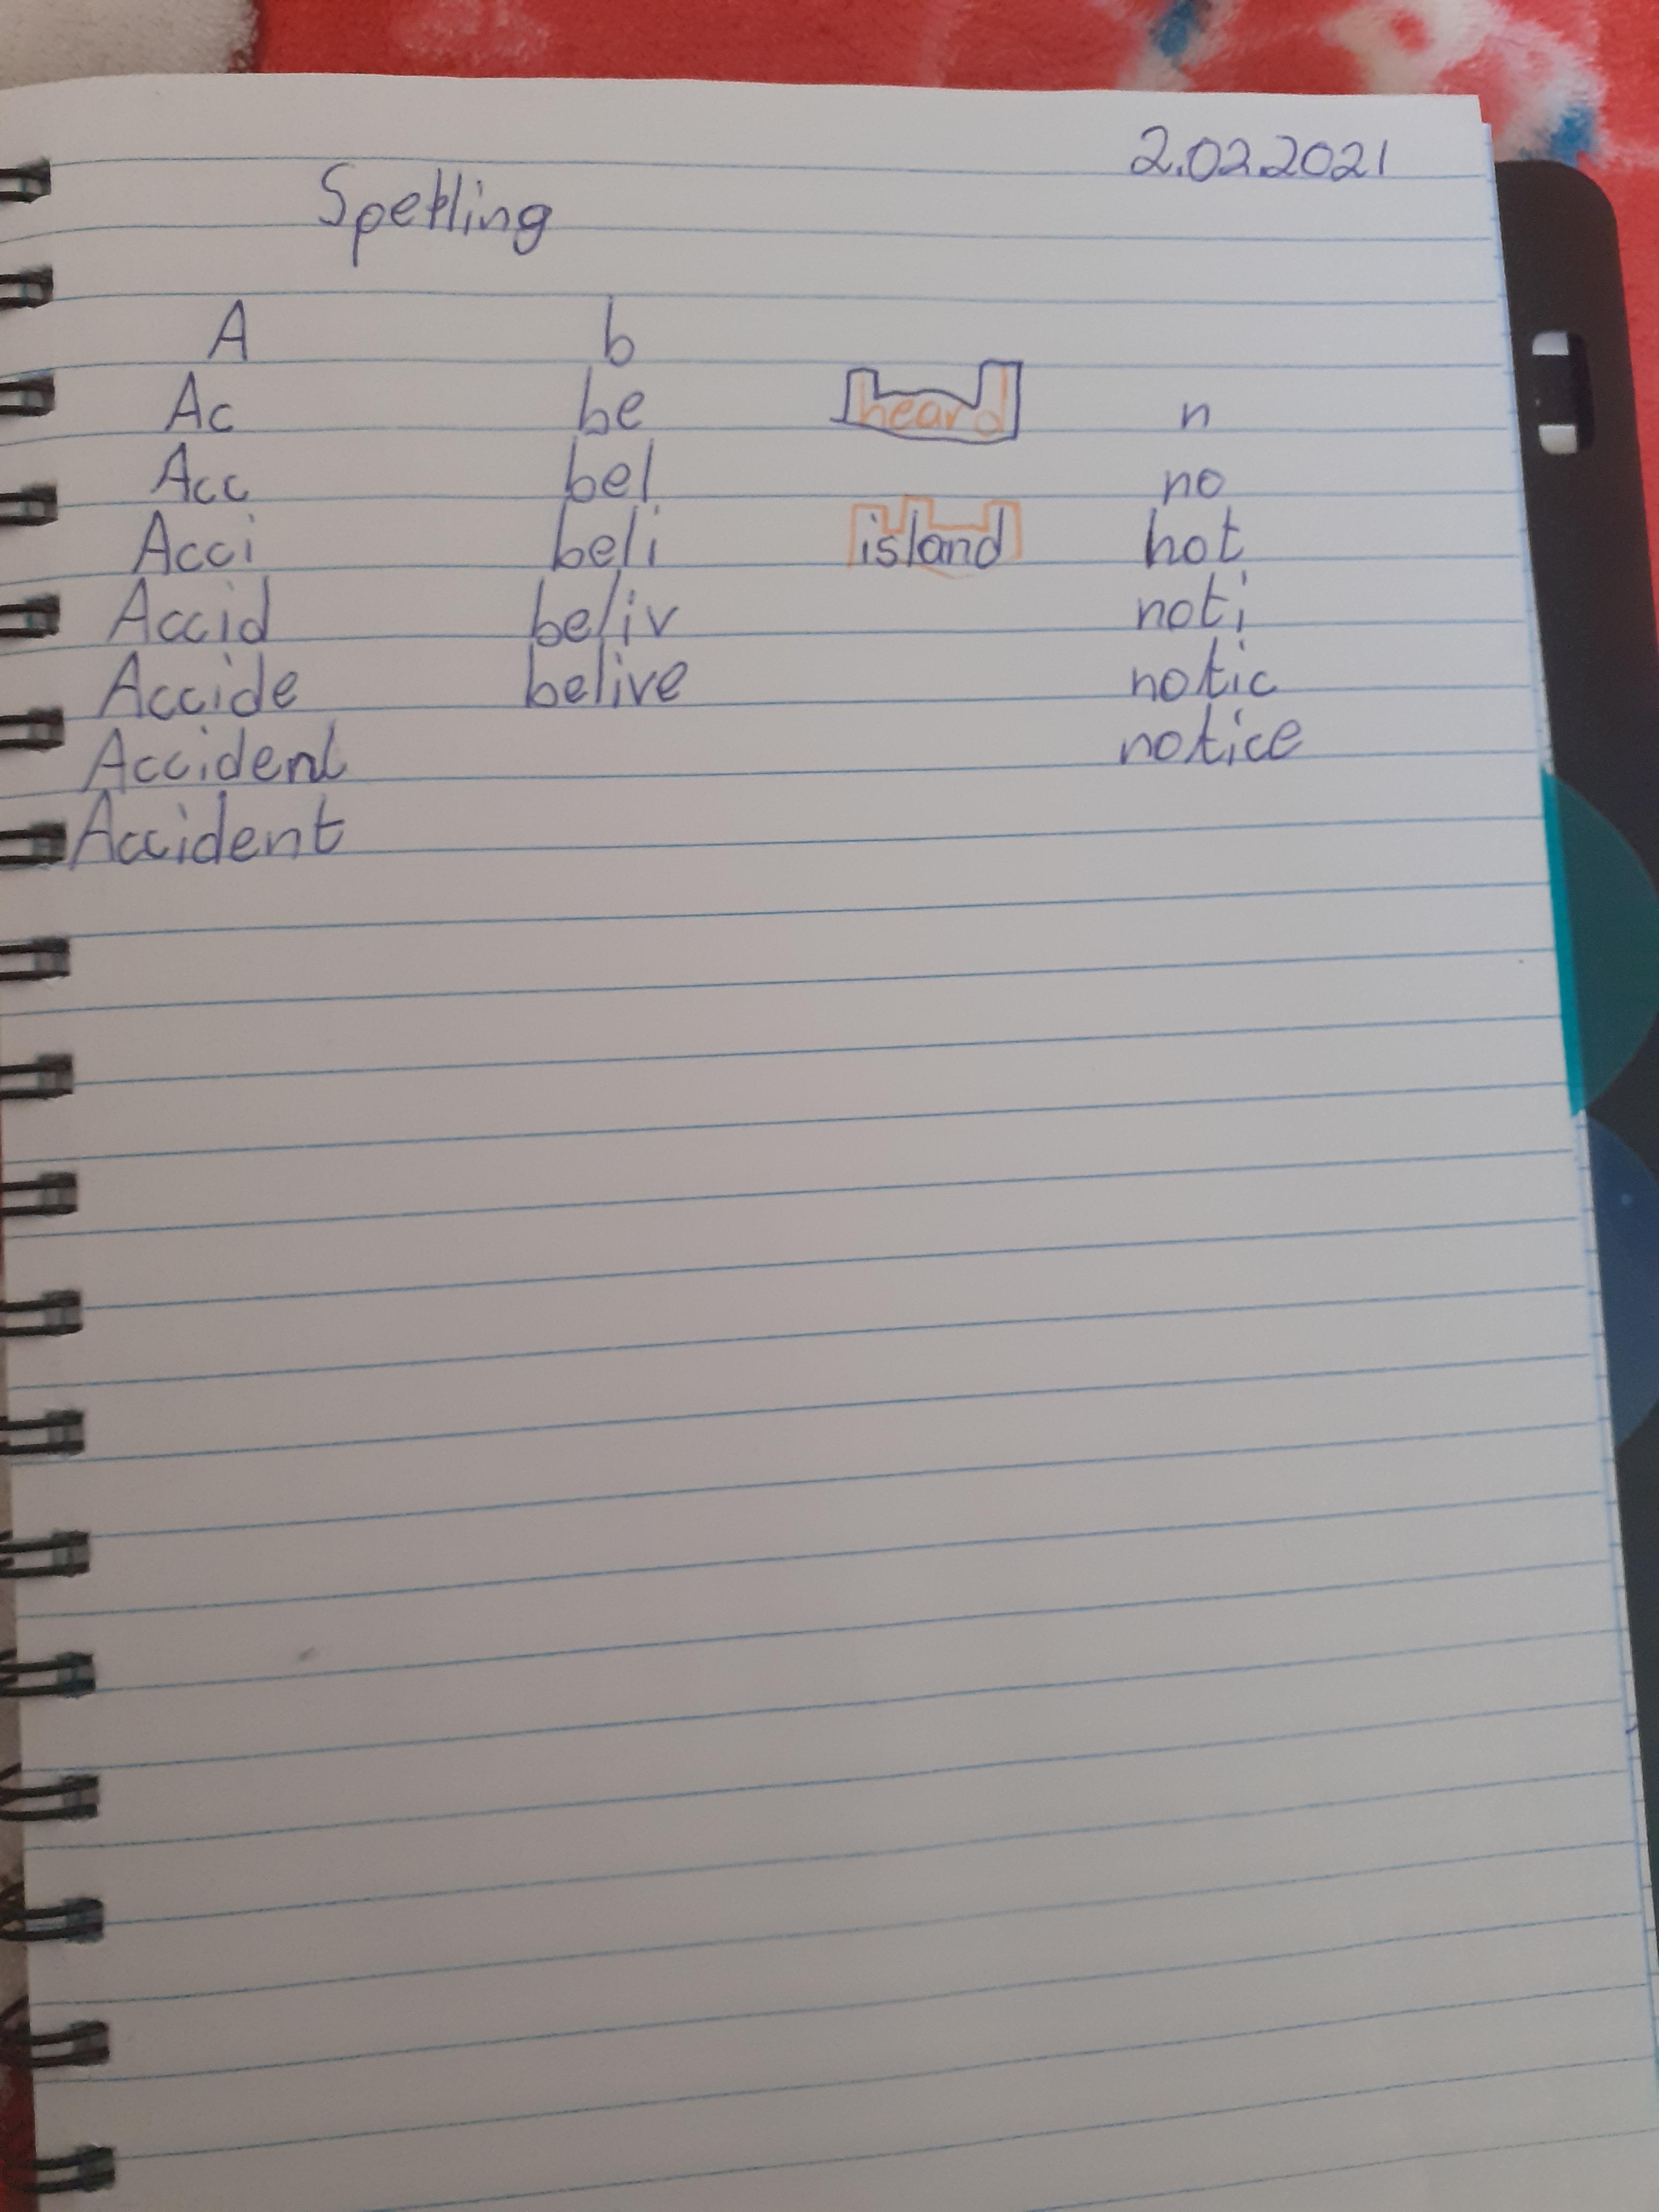 2.02.2021
Spelling
A b
Ac be heard n
Acc bel no
Acci beli island not
Accid beliv noti
Accide belive notic
Accident notice
Accident